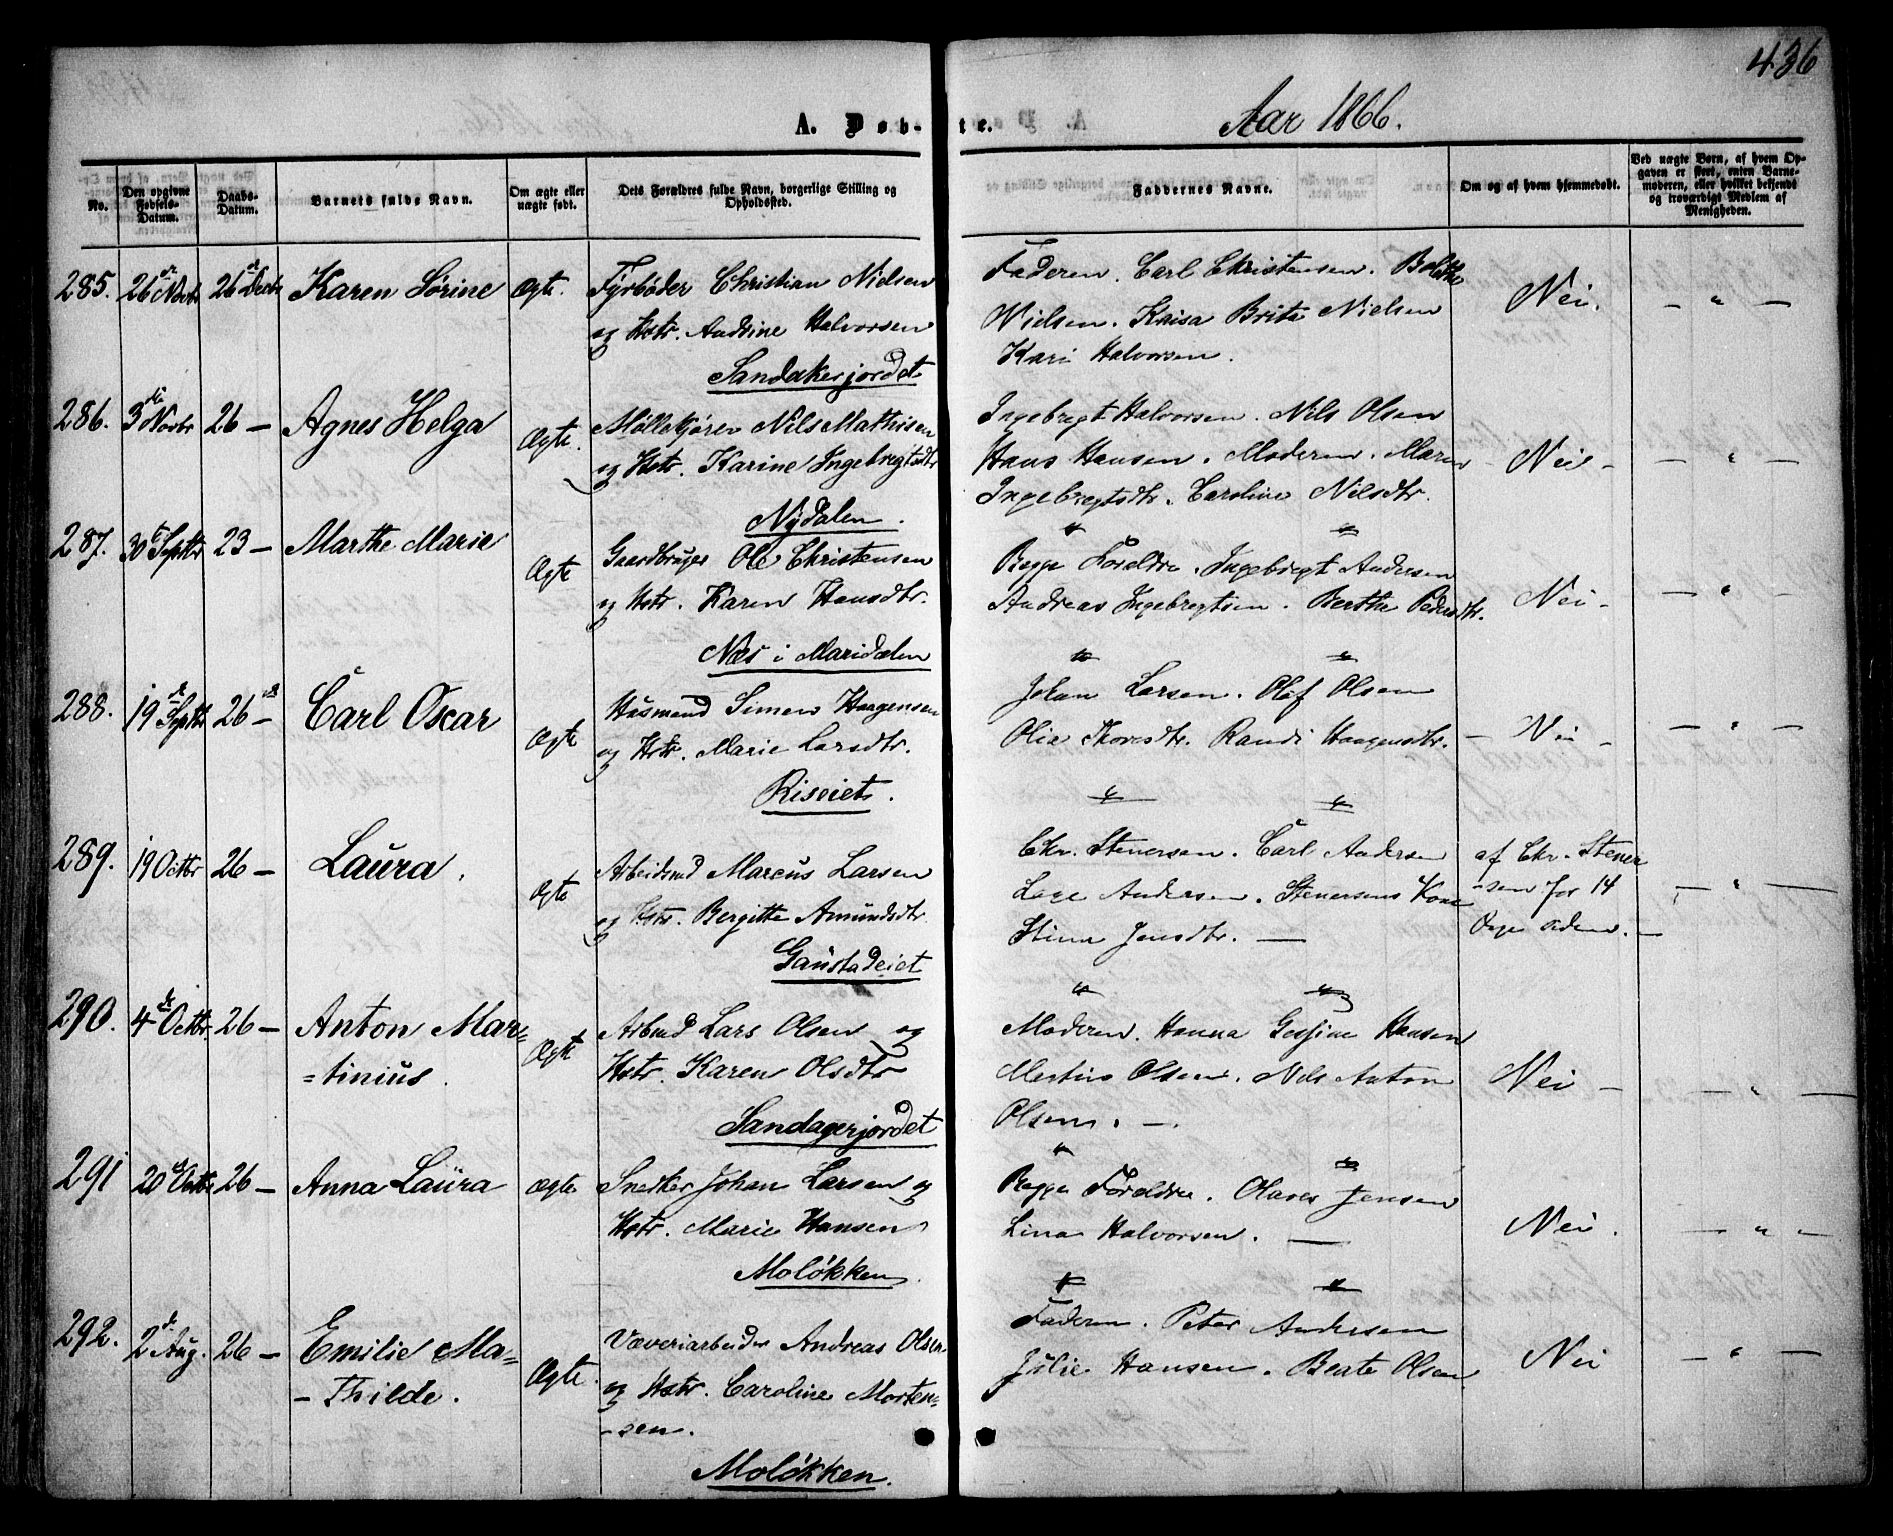 436
A. Døb-te. Aar 1866.
No.
Den opgivne Fødsels-Datum.
Daabs-Datum.
Barnets fulde Navn.
Om ægte eller uægte født.
Dets Forældres fulde Navn, borgerlige Stilling og Opholdssted.
Faddernes Navne.
Om og af hvem hjemmedøbt.
Ved uægte Børn, af hvem Opgaven er skeet, enten Barnemoderen, eller hvilket bekjendt og troværdigt Medlem af Menigheden.
285. 26 Novbr 26 Decbr Karen Sørine Ægte. Fyrbøder Christian Nielsen Faderen. Carl Christensen. Bolette
og Hstr. Andrine Halvorsen Nielsen. Kaisa Brita Nielsen Nei. — " —
Sandakerjordet Kari Halvorsen.
286. 3 Novbr 26 — Agnes Helga Ægte. Møllekjører Nils Mathisen Ingebregt Halvorsen. Nils Olsen
og Hstr. Karine Ingebregtsdtr Hans Hansen. Moderen. Maren Nei — — " —
Nydalen. Ingebregtsdtr. Caroline Nilsdtr.
287. 30 Septbr 23 — Marthe Marie Ægte Gaardbruger Ole Christensen Begge Forældre. Ingebregt Andersen
og Hstr. Karen Hansdtr. Andreas Ingebregtsen. Berthe Pedersdtr. Nei — — " —
Næs i Maridalen
288. 19 Septbr 26 — Carl Oscar Ægte Husmand Simen Haagensen Johan Larsen. Olaf Olsen
og Hstr. Marie Larsdtr. Olia Thoresdtr. Randi Haagensdtr. — Nei — — " —
Riseiet.
289. 19 Octbr 26 — Laura. Ægte Arbeidsmd Marcus Larsen Chr. Stenersen. Carl Andersen af Chr. Stener
og Hstr. Bergitte Amundsdtr. Andersen. Stenersens Kone -sen for 14 — " —
Gaustadeiet Stina Jensdtr. — Dage siden. —
290. 4 Octbr. 26 — Anton Mar= Ægte Arbmd Lars Olsen og Moderen. Hanna Gusine Hansen
=tinius. Hstr. Karen Olsdtr Martin Olsen. Nils Anton Nei — — " —
Sandagerjordet Olsen. —.
291 20 Octbr 26 — Anna Laura Ægte Snedker Johan Larsen og Begge Forældre. Olaves Jensen
Hstr. Marie Hansen Lina Halvorsen. — Nei. — " —
Moløkken
292. 2 Aug. 26 — Emilie Ma= Ægte. Væveriarbeider Andreas Olsen Faderen. Peter Andersen
- Thilde. og Hstr. Caroline Morten= Julie Hansen. Beate Olsen Nei — " —
-sen.
Moløkken.